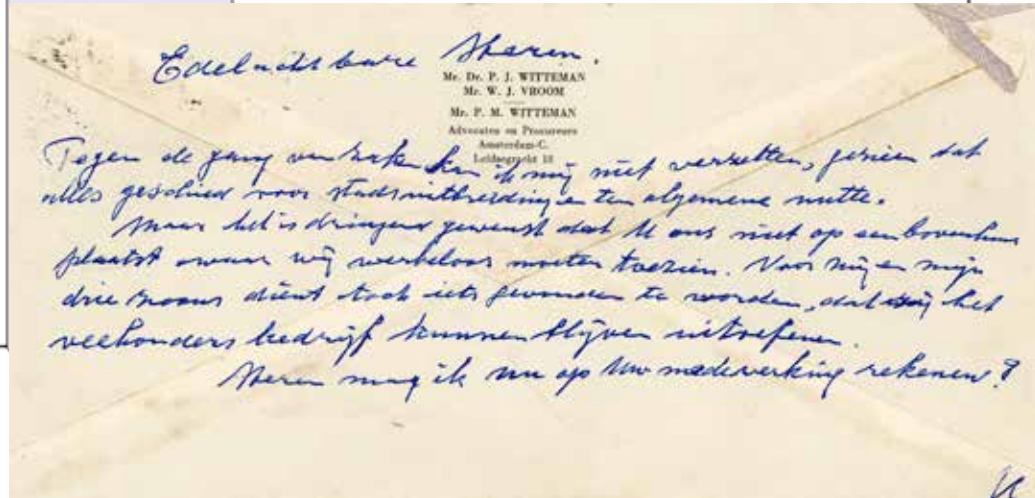 Edelachtbare Heeren.
Mr. Dr. P. J. WITTEMAN
Mr. W. J. VROOM
Mr. P. M. WITTEMAN
Advocaten en Procureurs
Amsterdam-C.
Leidsegracht 18
Tegen de gang van zaken kan ik mij niet verzetten, gezien dat
alles geschied voor stadsuitbreiding en ten algemene nutte.
Maar het is dringend gewenst dat U ons niet op een bovenhuis
plaatst waar wij werkeloos moeten toezien. Voor mij en mijn
drie zoons dient toch iets gevonden te worden, dat wij het
veehouders bedrijf kunnen blijven uitoefenen.
Heren mag ik nu op Uw medewerking rekenen?